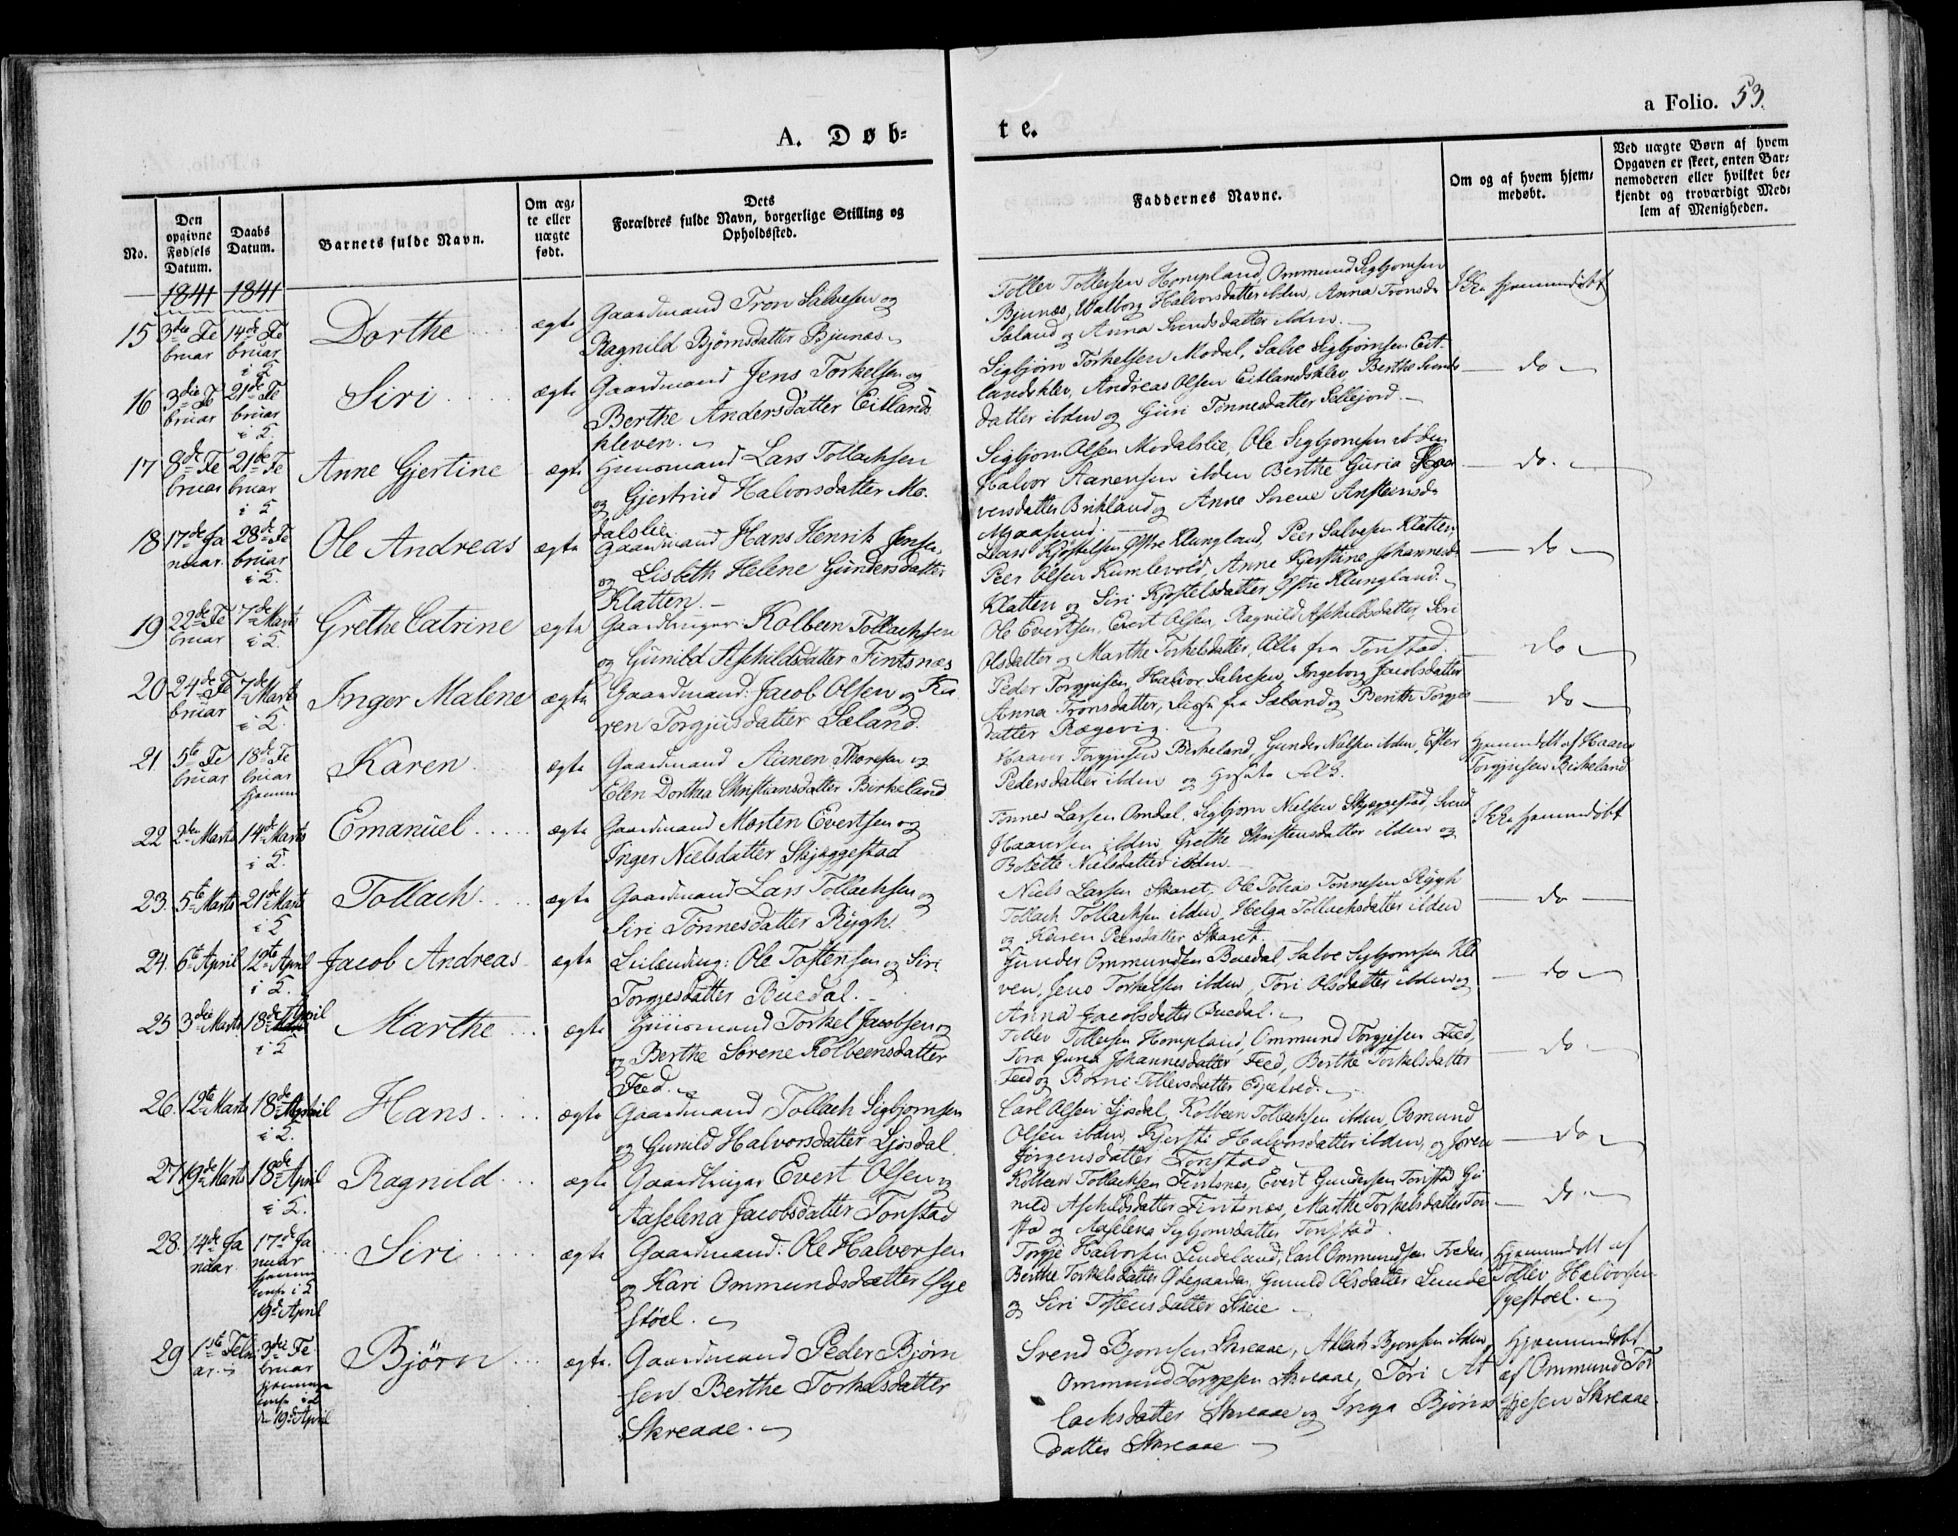 a Folio. 53.
A. Døb=
te.
No.
Den opgivne Fødsels Datum.
Daabs Datum.
Barnets fulde Navn.
Om æg=te eller uægte født.
Dets Forældres fulde Navn, borgerlige Stilling og Opholdssted.
Faddernes Navne.
Om og af hvem hjem=medøbt.
Ved uægte Børn af hvem Opgaven er skeet, enten Bar=nemoderen eller hvilket be=kjendt og troværdigt Med=lem af Menigheden.
1841 1841
15 3die Fe 14de Fe Dorthe ægte Gaardmand Tron Salvesen og
bruar bruar Ragnild Bjørnsdatter Bjunæs
i K.
Tollev Tollefsen Hompland, Ommund Sigbjørnsen
Bjunæs, Walborg Halvorsdatter ibden, Anna Tronsd
Saland og Anna Svendsdatter ibden.
Ikke hjemmedøbt
16 3die Fe 21de Fe Siri ægte Gaardmand Jens Torkelsen og
bruar bruar Berthe Andersdatter Eitlands
kleven.
Sigbjørn Torkelsen Modal, Salve Sigbjørnsen Eit
landsklev, Andreas Olsen Eitlandsklev, Berthe Svends
datter ibden og Guri Tønnesdatter Sellejord.
do
17 8de Fe 21de Fe Anne Gjertine ægte Huusmand Lars Tollachsen
bruar bruar og Gjertrud Halvorsdatter Mo
dalslie
Sigbjørn Olsen Modalslie, Ole Sigbjørnsen ibden
Halvor Aanensen ibden Berthe Guria Haa
versdatter Birkland og Anne Sorene Anstensd
Mgaasund.
do.
18 17de Ja 28de Fe Ole Andreas ægte Gaardmand Hans Henrik Jensen
nuar bruar og Lisbeth Helene Gundersdatter
Klatten.
Lars Kjøstelsen Østre Klungland, Peer Salvesen Klatten,
Peer Olsen Kumlevold, Anne Kjerstine Johannesd
Klatten og Siri Kjøstelsdatter Østre Klungland.
do
19 22de Fe 7de Marts Grethe Catrine ægte Gaardbruger Kolbeen Tollachsen
bruar og Gunild Aschildsdatter Fintsnæs
Ole Evertsen, Evert Olsen, Ragnild Aschildsdatter, Siri
Olsdatter og Marthe Torkelsdatter, Alle fra Tonstad.
do
20 24de Fe 7de Marts Inger Malene ægte Gaardmand: Jacob Olsen og Ka
bruar ren Torgjusdatter Sæland.
Peder Torgjusen, Halvor Salvesen, Ingeborg Jacobsdatter
Anna Tronsdatter, fra Sæland og Berith Torgjus
datter Rægevig.
do
21 5te Fe 18de Fe Karen ægte Gaardmand Aanen Thoresen og
bruar bruar Elen Dorthea Christiansdatter Birkeland
hjemme
Haaver Torgjusen Birkeland, Gunder Nielsen ibden, Ester
Pedersdatter ibden og
Hjemmedøbt af Haaver
Torgjusen Birkeland
22 2den Marts 14de Marts Emanuel ægte Gaardmand Morten Evertsen og
Inger Nielsdatter Skjæggestad
Tønnes Larsen Omdal, Sigbjørn Nielsen Skjæggestad, Svend
Haaversen ibden, Grethe Christensdatter ibden og
Bolette Nielsdatter ibden
Ikke hjemmedøbt
23. 5te Marts 21de Marts Tollach ægte Gaardmand Lars Tollachsen og
Siri Tønnesdatter Rygh.
Niels Larsen Skaret, Ole Tobias Tønnesen Rygh
Tollach Tollachsen ibden, Helga Tollachsdatter ibden
og Karen Peersdatter Skaret.
do
24. 6te April 12te April Jacob Andreas ægte Leilending: Ole Tostensen og Siri
Torgjesdatter Buedal.
Gunder Ommundsen Buedal Salve Sigbjørnsen Kle
ven, Jens Torkelsen ibden, Tori Olsdatter ibden og
Anna Jacobsdatter Buedal.
do
25 3die Marts 18de April Marthe ægte Huusmand Torkel Jacobsen og
og Berthe Sorene Kolbeensdatter
Feed.
Tollev Tollefsen Hompland, Ommund Torgjusen Feed,
Tora Guria Johannesdatter Feed, Berthe Torkelsdatter
Feed og Børni Tollevsdatter
do
26. 12te Marts 18de April Hans ægte Gaardmand Tollach Sigbjørnsen
og Gunild Halvorsdatter Ljosdal
Carl Olsen Ljosdal, Kolbeen Tollachsen ibden, Osmund
Olsen ibden, Kjersti Halvorsdatter ibden, og Joren
Jørgensdatter Tonstad
do
27 19de Marts 18de April Ragnild ægte Gaardbruger Evert Olsen og
Aaselena Jacobsdatter Tonstad
Kolbeen Tollachsen Fintsnæs, Evert Gundersen Tonstad Gu
nild Aschildsdatter Fintsnæs, Marthe Torkelsdatter Ton
stad og Aaselena Sigbjørnsdatter Tonstad.
do
28. 14de Ja 17de Ja Siri ægte Gaardmand: Ole Halvorsen
nuar nuar og Kari Ommundsdatter Øye
hjemme støel.
19de April
Torgje Halvorsen Lindeland, Carl Ommundsen Træden,
Berthe Torkelsdatter Ødegaarden, Gunild Olsdatter Lunde
og Siri Tostensdatter Skeie
Hjemmedøbt af
Tollev Halvorsen
Øyestøel.
29 1ste Febru 3die Fe Bjørn ægte. Gaardmand Peder Bjørn
ar bruar sen Berthe Torkelsdatter
hjemme Skreaae.
den 19de April
Svend Bjørnsen Skreaae, Atlach Bjørnsen ibden,
Ommund Torgjesen Skreaae, Tori At
lachsdatter Skreaae og Inga Bjørns
datter Skreaae
Hjemmedøbt
af Ommund Tor
gjesen Skreaae.